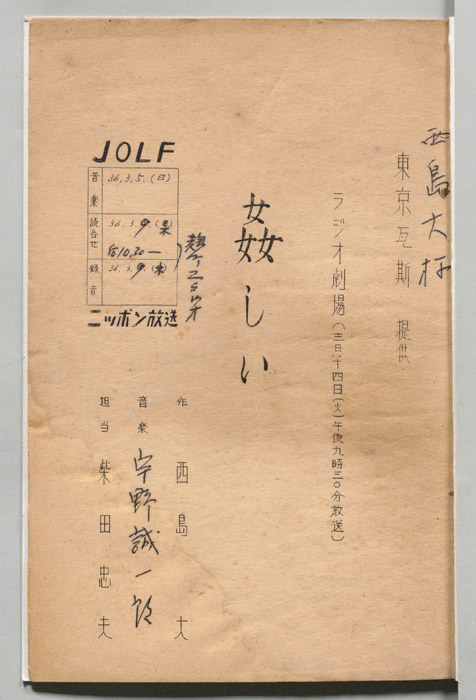 西島大様
東京瓦斯 提供
ラジオ劇場(三月十四日(火)午後九時三〇分放送)
姦しい
JOLF
音楽 36.3.5.(日)
読合せ 36.3.9(木)
后10.30—
録音 36.3.9.(木)
ニッポン放送
作 西島大
音楽 宇野誠一郎
担当 柴田忠夫